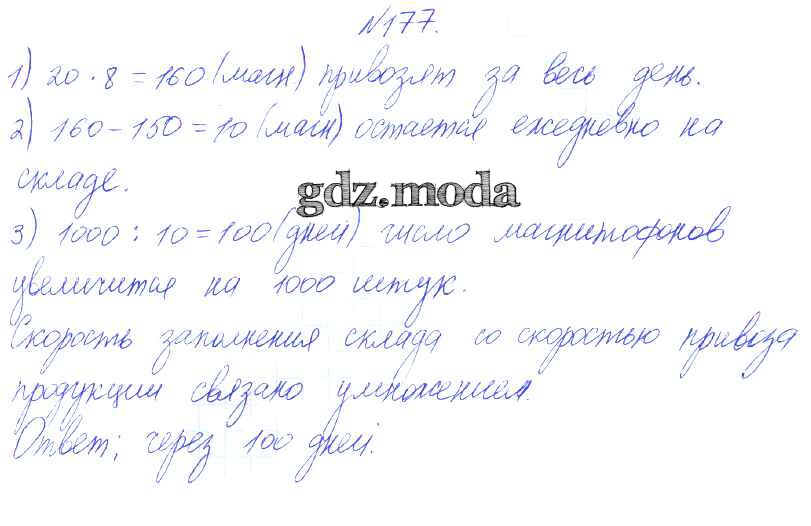 №177.
1) 20 · 8 = 160 (магн) привозят за весь день.
2) 160 - 150 = 10 (магн) остается ежедневно на
складе.
gdz.moda
3) 1000 : 10 = 100 (дней) число магнитофонов
увеличится на 1000 штук.
Скорость заполнения склада со скоростью привоза
продукции связано умножением.
Ответ: через 100 дней.